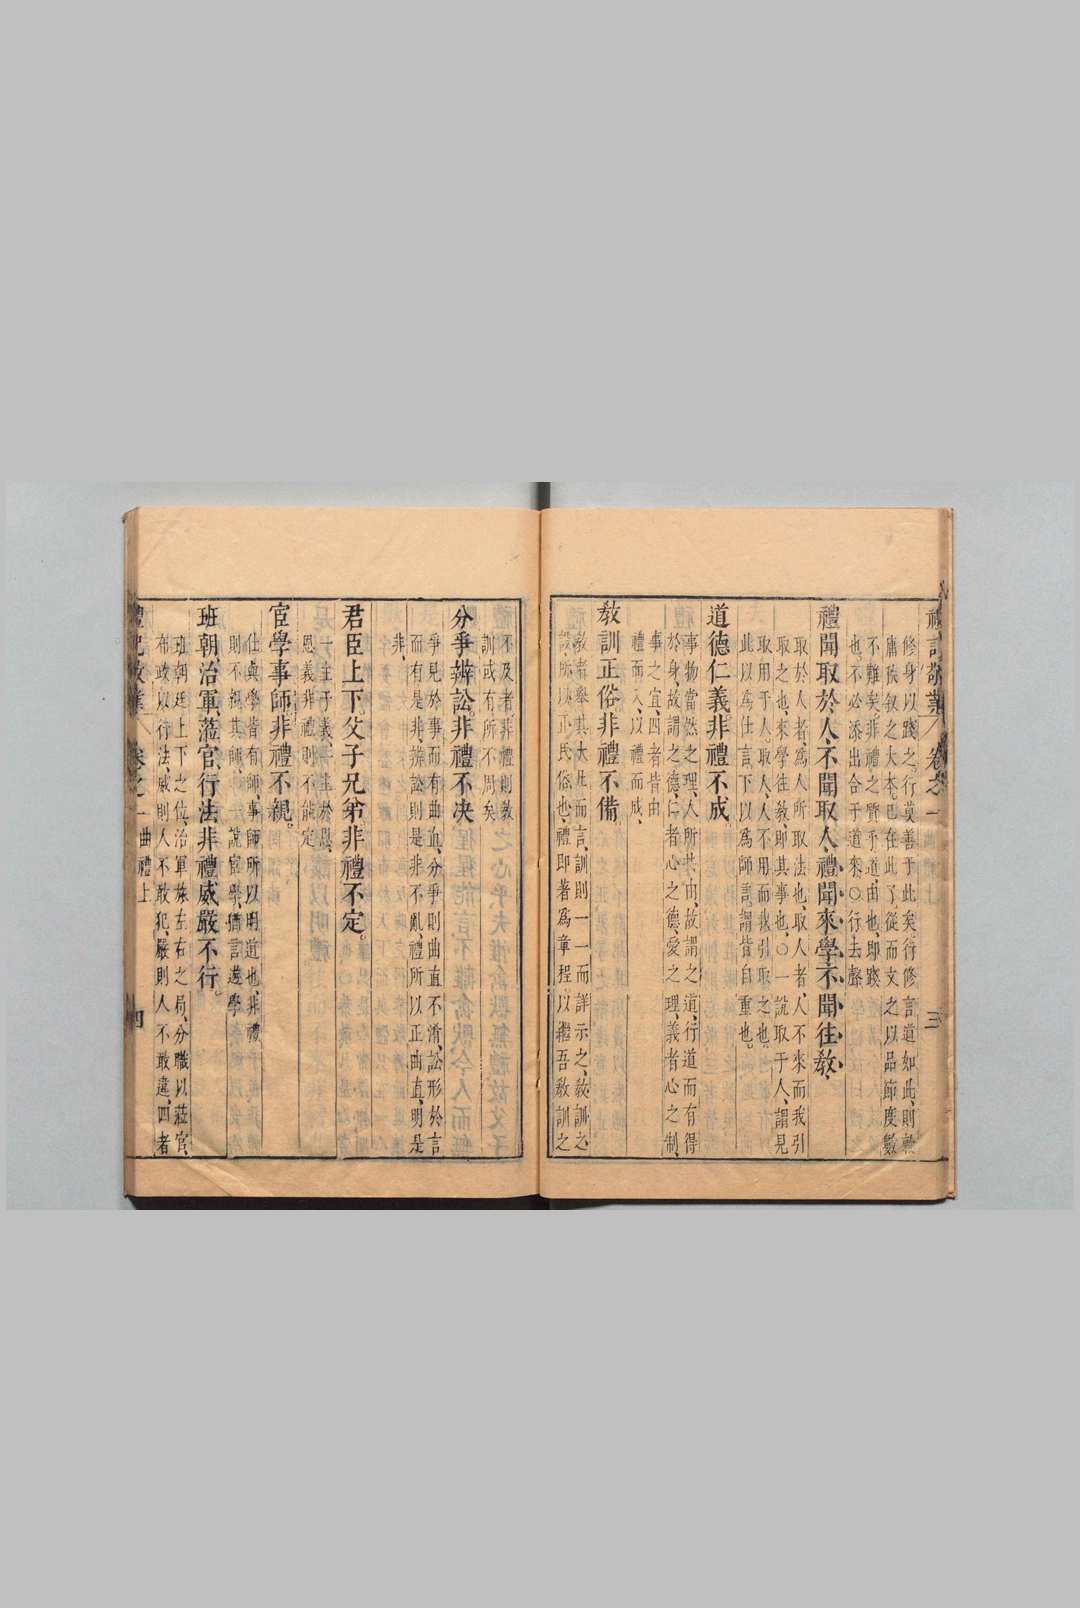 禮記敬業 卷之一 三
修身以踐之行莫善于此矣行修言道如此則
庸庸敘之大本已在此了從而文之以品節度數
不難矣非禮之質乎道由也即踐
也不必添出合于道來○行去聲
禮聞取於人、不聞取人、禮聞來學、不聞往教、
取於人者、為人所取法也、取人者、人不來而我引
取之也、來學往教、即其事也、○一說取于人、謂見
取用于人。取人、人不用而我引取之也
此以為仕言、下以為師言、謂皆自重也。
道德仁義非禮不成
事物當然之理、人所共由、故謂之道、行道而有得
於身、故謂之德、仁者心之德、愛之理、義者心之制、
事之宜、四者皆由
禮而入、以禮而成、
教訓正俗非禮不備
教者舉其大凡而言、訓則一一而詳示之、教訓之
設、所以正民俗也、禮即著為章程。以繼吾教訓之
不及者、非禮則教
訓或有所不周矣
分爭辨訟。非禮不决
爭見於事而有曲直、分爭則曲直不淆、訟形於言
而有是非、辨訟則是非不亂、禮所以正曲直、明是
非、
君臣上下、父子兄弟、非禮不定。
一主于義、一主於恩、
恩義非禮則不能定
宦學事師、非禮不親。
仕與學皆有師、事師所以明道也、非禮
則不親其師、一說宦學、猶言遊學
班朝、治軍、蒞官、行法、非禮威嚴不行。
班朝廷上下之位、治軍旅左右之局、分職以蒞官、
布政以行法、威則人不敢犯、嚴則人不敢違、四者
禮記敬業 卷之一 曲禮上 四